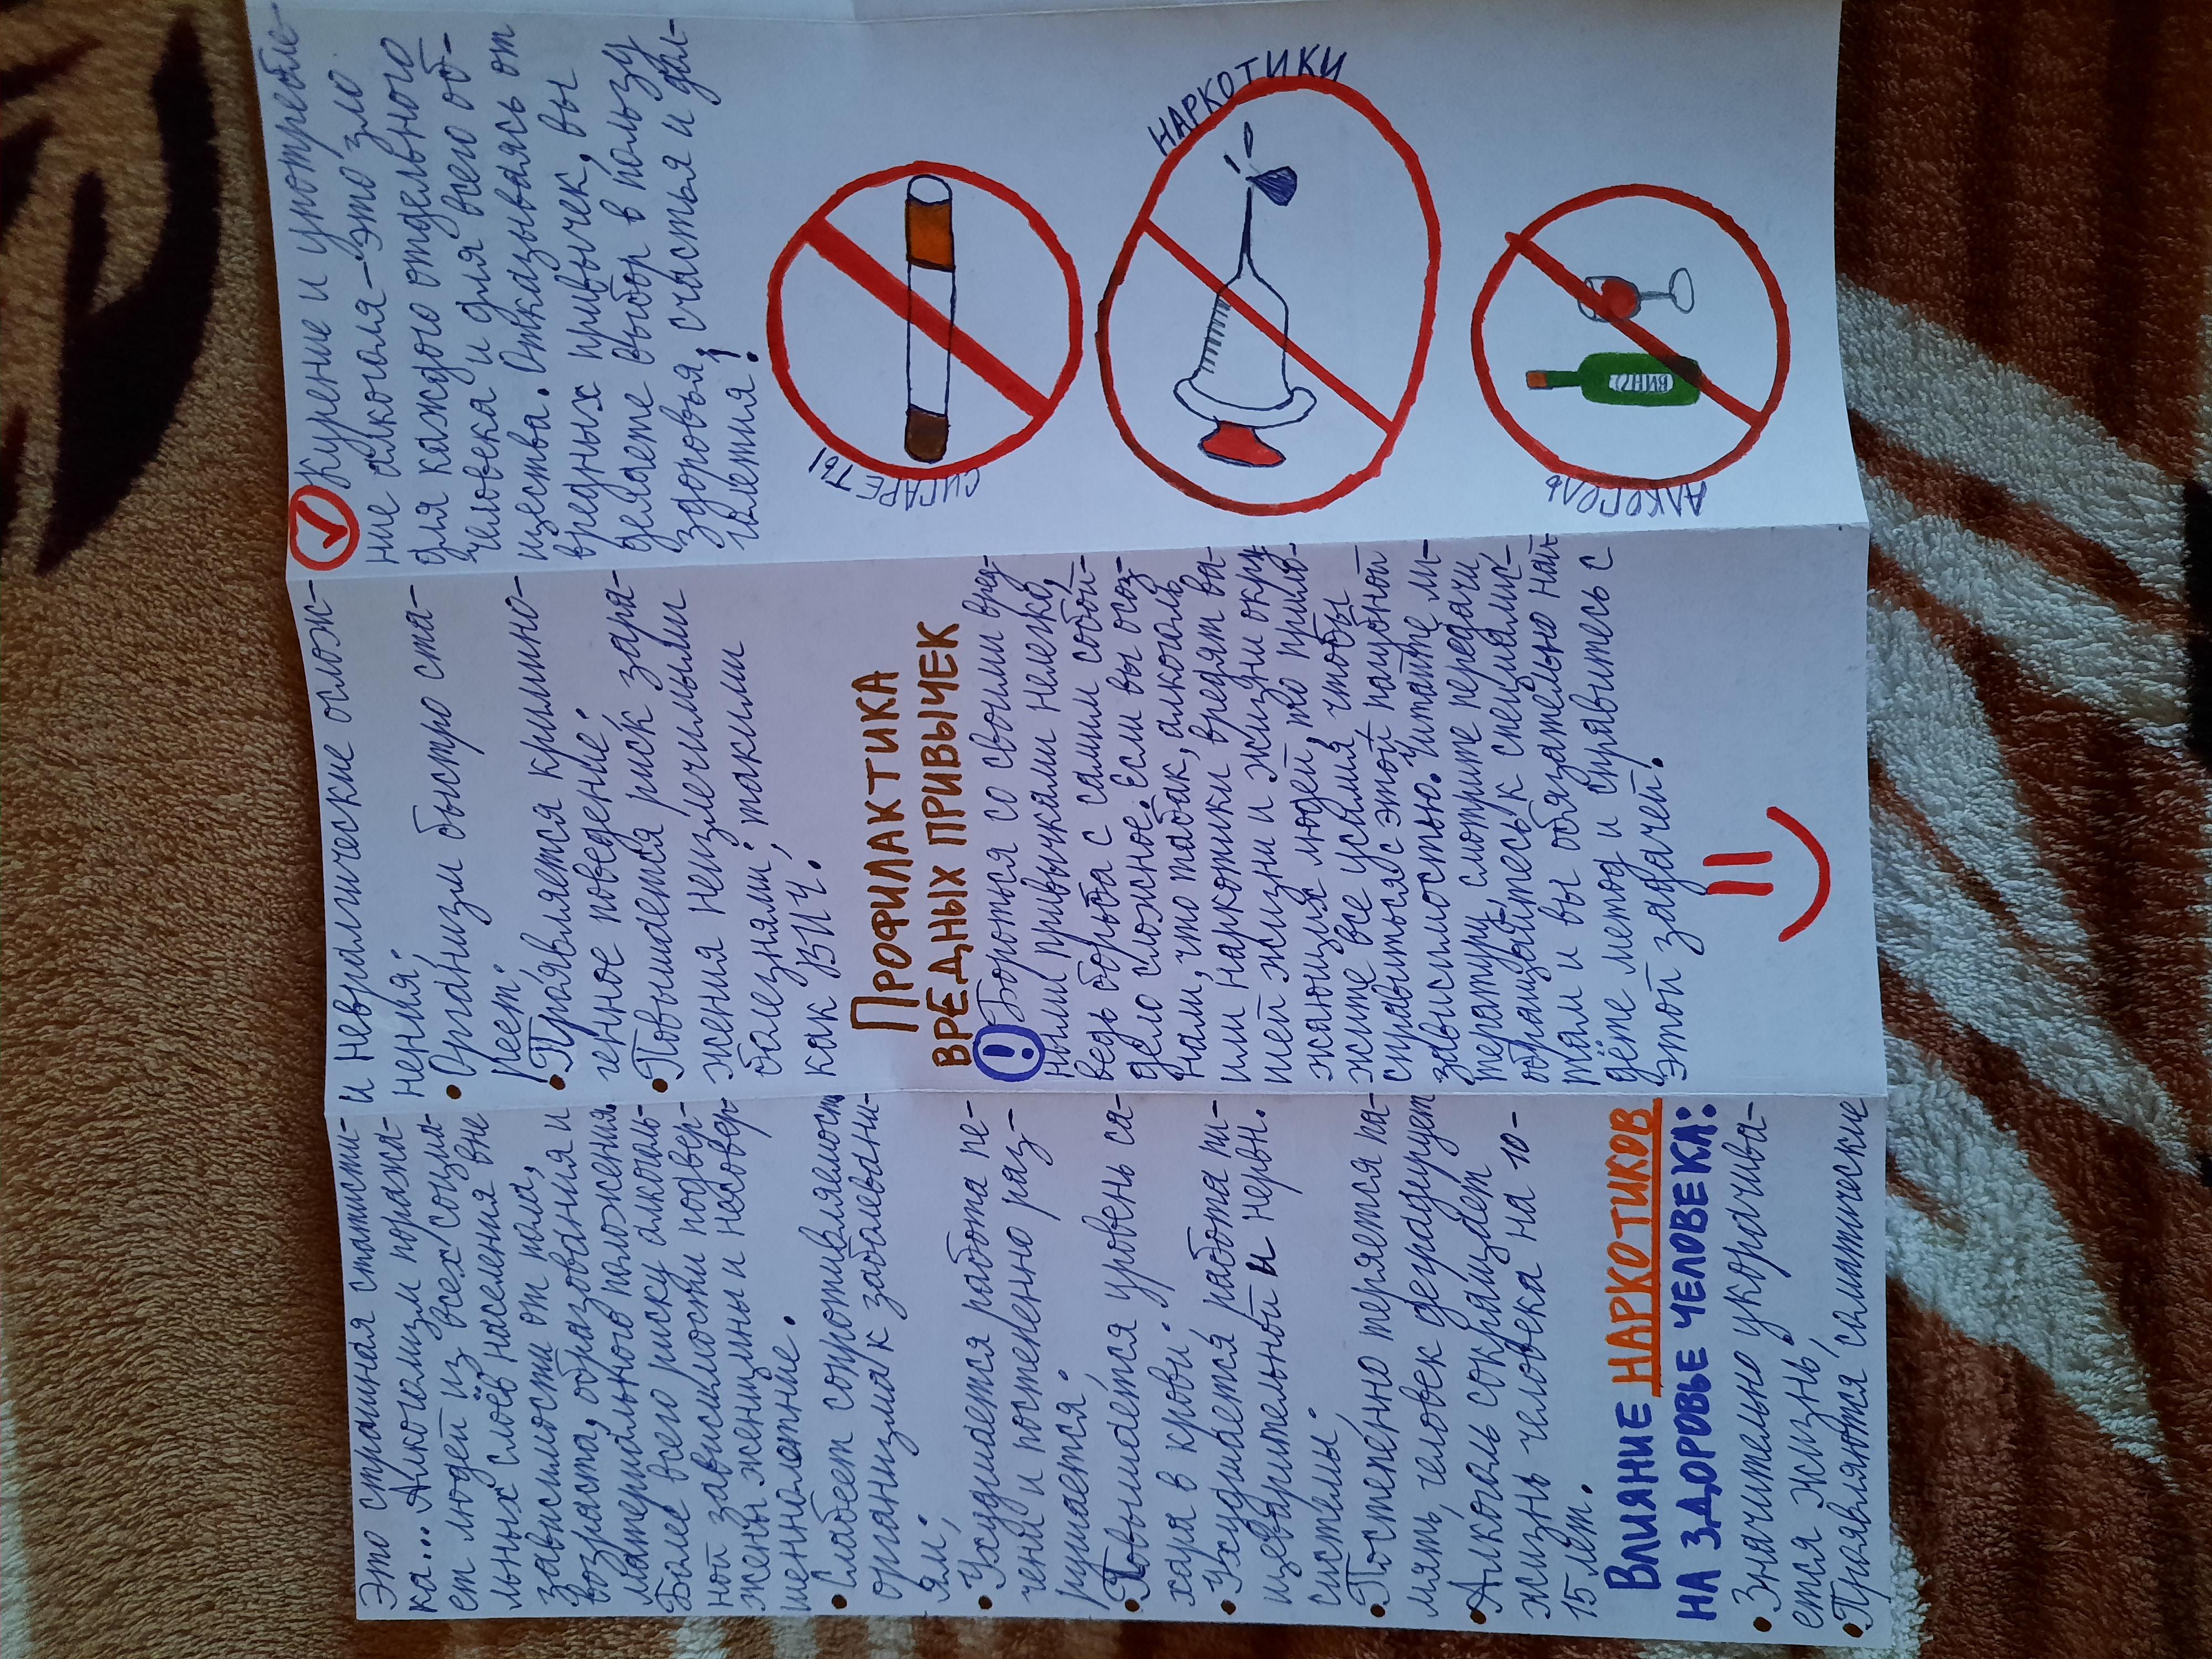 Это страшная статисти-
ка... Алкоголизм поража-
ет людей из всех социа-
льных слоёв населения вне
зависимости от пола,
возраста, образования и
материального положения.
Более всего риску алкоголь-
ной зависимости подвер-
жены женщины и несовер-
шеннолетние.
• Слабеет сопротивляемость
организма к заболевани-
ям;
• Ухудшается работа пе-
чени и постепенно раз-
рушается.
• Повышается уровень са-
хара в крови.
• Ухудшается работа пи-
щеварительной и нервн.
системы.
• Постепенно теряется па-
мять, человек деградирует
• Алкоголь сокращает
жизнь человека на 10-
15 лет.
ВЛИЯНИЕ НАРКОТИКОВ
НА ЗДОРОВЬЕ ЧЕЛОВЕКА:
• Значительно укорачива-
ется жизнь;
• Проявляются соматические
и невралгические ослож-
нения;
• Организм быстро ста-
реет.
• Проявляется кримино-
генное поведение.
• Повышается риск зара-
жения неизлечимыми
болезнями; такими
как ВИЧ.
ПРОФИЛАКТИКА
ВРЕДНЫХ ПРИВЫЧЕК
! Бороться со своими вред-
ными привычками нелегко,
ведь борьба с самим собой-
дело сложное. Если вы осоз-
нали, что табак, алкоголь
или наркотики вредят ва-
шей жизни и жизни окру
жающих людей, то прило-
жите все усилия, чтобы
справиться с этой пагубной
зависимостью. Читайте ли-
тературу, смотрите передачи,
обращайтесь к специалис-
там и вы обязательно най
дёте метод и справитесь с
этой задачей.
курение и употребле-
ние алкоголя-это зло
для каждого отдельного
человека и для всего об-
щества. Отказываясь от
вредных привычек, вы
делаете выбор в пользу
здоровья, счастья и дол-
голетия!
СИГАРЕТЫ
НАРКОТИКИ
АЛКОГОЛЬ
ВИНО